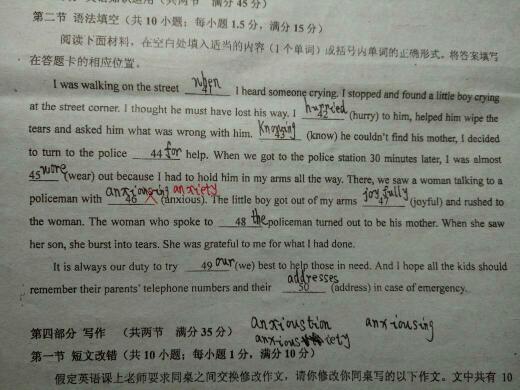 满分 45 分）
第二节 语法填空（共 10 小题；每小题 1.5 分，满分 15 分）
阅读下面材料，在空白处填入适当的内容（1 个单词）或括号内单词的正确形式。将答案填写
在答题卡的相应位置。
I was walking on the street when 41 I heard someone crying. I stopped and found a little boy crying
at the street corner. I thought he must have lost his way. I hurried 42 (hurry) to him, helped him wipe the
tears and asked him what was wrong with him. Knowing 43 (know) he couldn't find his mother, I decided
to turn to the police 44 for help. When we got to the police station 30 minutes later, I was almost
45 wore (wear) out because I had to hold him in my arms all the way. There, we saw a woman talking to a
policeman with anxiousing 46 anxiety (anxious). The little boy got out of my arms joyfully 47 (joyful) and rushed to
the woman. The woman who spoke to 48 the policeman turned out to be his mother. When she saw
her son, she burst into tears. She was grateful to me for what I had done.
It is always our duty to try 49 our (we) best to help those in need. And I hope all the kids should
remember their parents' telephone numbers and their addresses 50 (address) in case of emergency.
第四部分 写作 （共两节 满分 35 分） anxioustion anxiousing
第一节 短文改错（共 10 小题；每小题 1 分，满分 10 分）
假定英语课上老师要求同桌之间交换修改作文，请你修改你同桌写的以下作文。文中共有 10